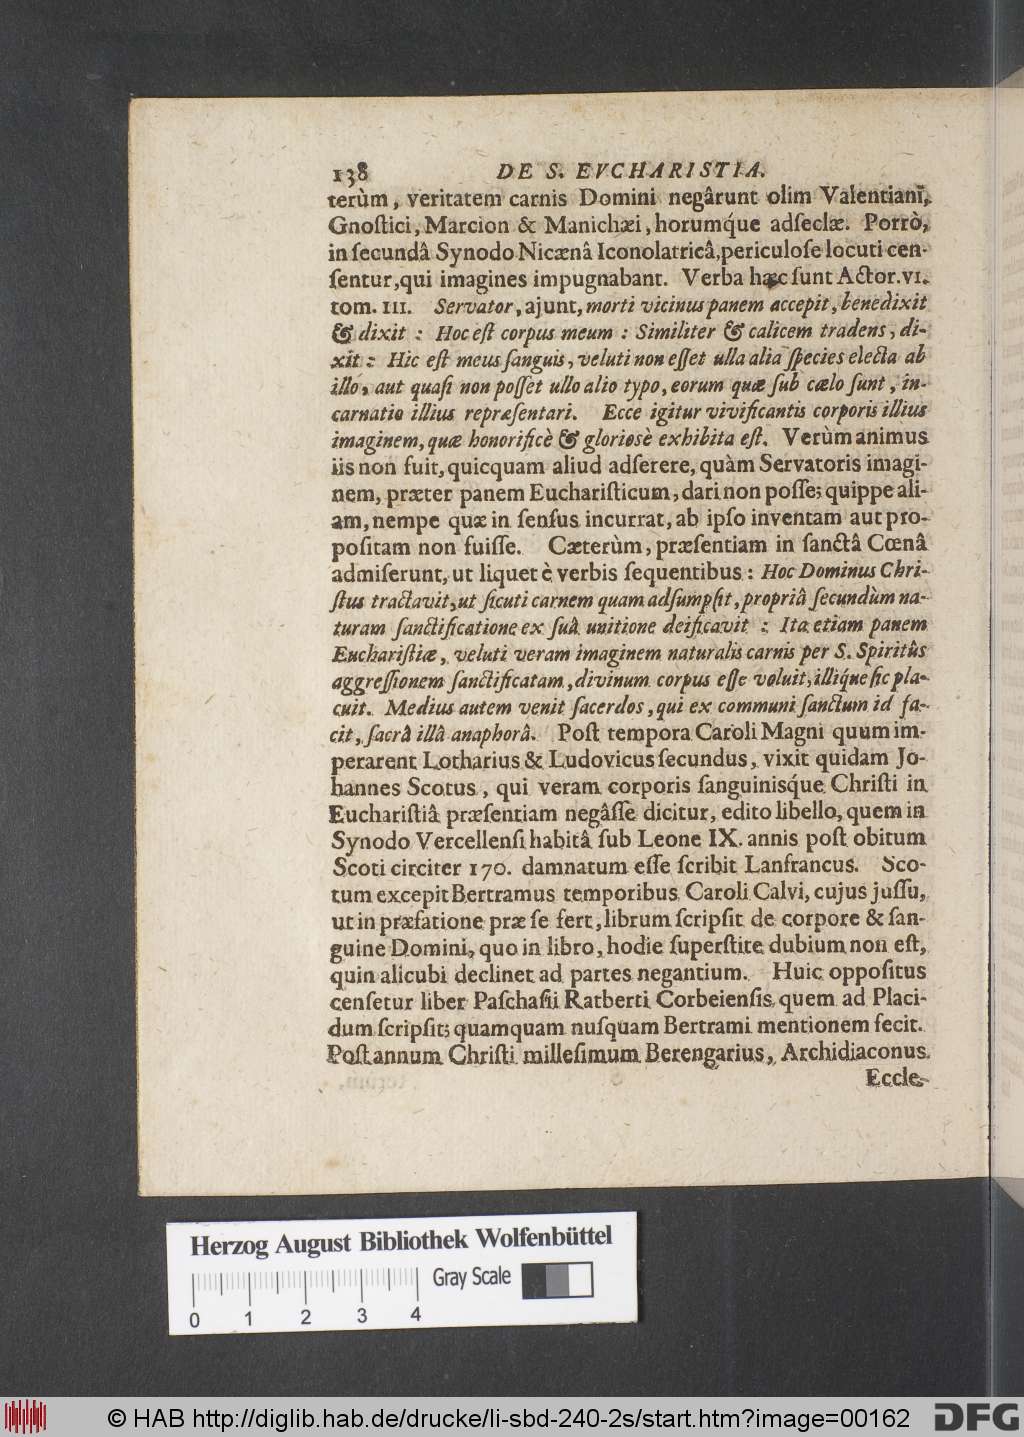 138 DE S. EVCHARISTIA.
terùm, veritatem carnis Domini negârunt olim Valentiani,
Gnoſtici, Marcion & Manichæi, horumq́ue adſeclæ. Porrò,
in ſecundâ Synodo Nicænâ Iconolatricâ, periculoſe locuti cen-
ſentur, qui imagines impugnabant. Verba hæc ſunt Actor. VI.
tom. III. Servator, ajunt, morti vicinus panem accepit, benedixit
& dixit : Hoc eſt corpus meum : Similiter & calicem tradens, di-
xit : Hic eſt meus ſanguis, veluti non eſſet ulla alia ſpecies electa ab
illo, aut quaſi non poſſet ullo alio typo, eorum quæ ſub cælo ſunt, in-
carnatio illius repræſentari. Ecce igitur vivificantis corporis illius
imaginem, quæ honorificè & gloriosè exhibita eſt. Verùm animus
iis non fuit, quicquam aliud adſerere, quàm Servatoris imagi-
nem, præter panem Euchariſticum, dari non poſſe; quippe ali-
am, nempe quæ in ſenſus incurrat, ab ipſo inventam aut pro-
poſitam non fuiſſe. Cæterùm, præſentiam in ſanctâ Cœnâ
admiſerunt, ut liquet è verbis ſequentibus : Hoc Dominus Chri-
ſtus tractavit, ut ſicuti carnem quam adſumpſit, propriâ ſecundùm na-
turam ſanctificatione ex ſuâ unitione deificavit : Ita etiam panem
Euchariſtiæ, veluti veram imaginem naturalis carnis per S. Spiritûs
aggreſſionem ſanctificatam, divinum corpus eſſe voluit, illíque ſic pla-
cuit. Medius autem venit ſacerdos, qui ex communi ſanctum id fa-
cit, ſacrâ illâ anaphorâ. Poſt tempora Caroli Magni quum im-
perarent Lotharius & Ludovicus ſecundus, vixit quidam Jo-
hannes Scotus, qui veram corporis ſanguinisq́ue Chriſti in
Euchariſtiâ præſentiam negâſſe dicitur, edito libello, quem in
Synodo Vercellenſi habitâ ſub Leone IX. annis poſt obitum
Scoti circiter 170. damnatum eſſe ſcribit Lanfrancus. Sco-
tum excepit Bertramus temporibus Caroli Calvi, cujus juſſu,
ut in præfatione præ ſe fert, librum ſcripſit de corpore & ſan-
guine Domini, quo in libro, hodie ſuperſtite dubium non eſt,
quin alicubi declinet ad partes negantium. Huic oppoſitus
cenſetur liber Paſchaſii Ratberti Corbeienſis, quem ad Placi-
dum ſcripſit; quamquam nuſquam Bertrami mentionem fecit.
Poſt annum Chriſti milleſimum Berengarius, Archidiaconus
Eccle-
Herzog August Bibliothek Wolfenbüttel
Gray Scale
0 1 2 3 4
© HAB http://diglib.hab.de/drucke/li-sbd-240-2s/start.htm?image=00162
DFG